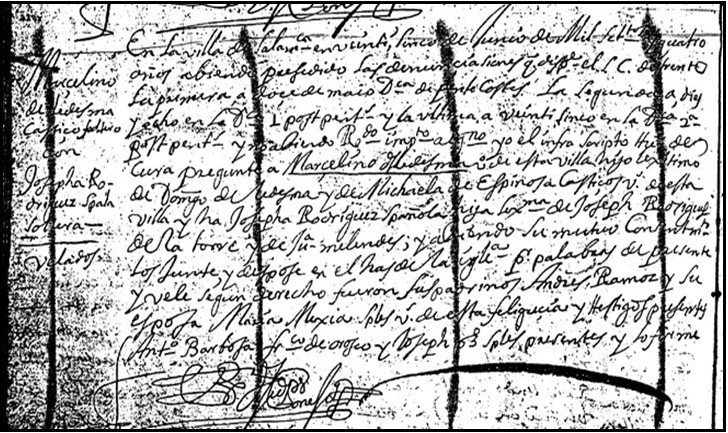 Marcelino
de Ledesma
Castiso soltero
con
Josepha Ro-
driguez Spãla
soltera
velados
En la villa de Salam.ca en veinti sinco de Junio de Mil Set.os quatro
años abiendo presedido las denunciasiones q disp.e el S.C. de trento
la primera a doce de maio D.ca de pentecostes La segunda a dies
y ocho en la D.ca 1 post pent.s y la ultima a veinti sinco en la D.ca 2.a
post pent.s y no abiendo R.do imp.to alg.no yo el infra scripto the.e de
Cura pregunte a Marcelino Ledesma v.o de esta villa hijo lexitimo
de Domg.o de Ledesma y de Michaela de Espinosa Castisos v.s de esta
villa y ha Josepha Rodriguez Española hija lex.ma de Joseph Rodrigues
de la torre y de Ju.a melendes; y abiendo su mutuo Consentim.to
los Junte y despose en el has de la igle.a p.r palabras de presente
y vele segun derecho fueron sus padrinos Andres Ramoz y su
esposa Maria Mexia spls v.s de esta feligrecia y testigos presentes
Ant.o Barbosa fr.co de orosco y Joseph spls, presentes y lo firme